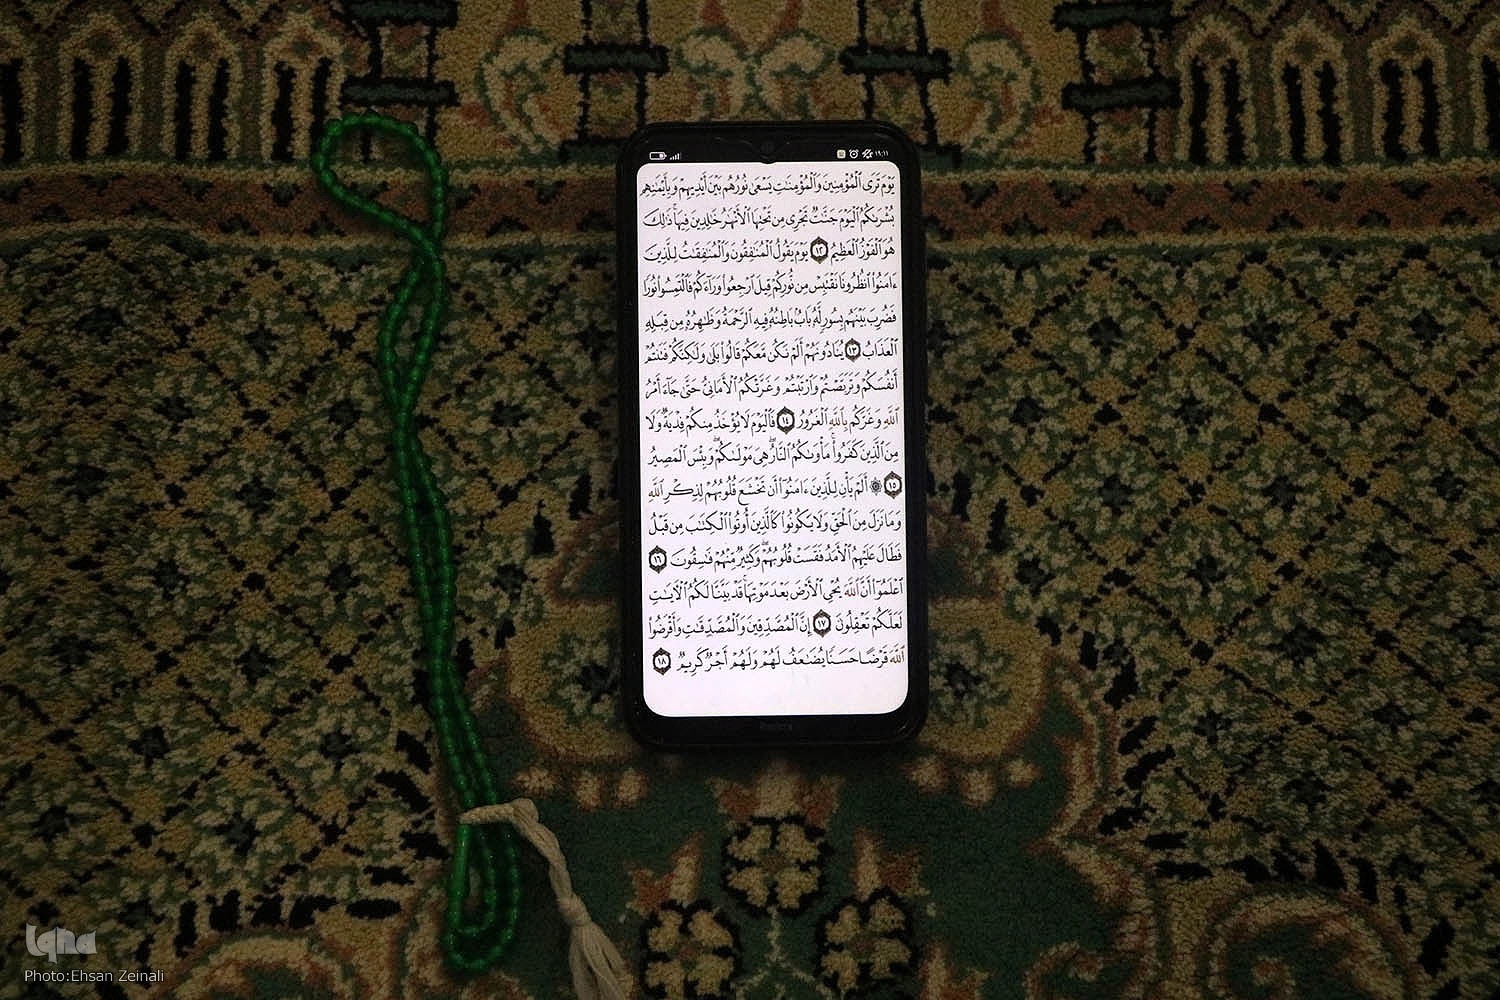 ١٩:١١
يَوْمَ تَرَى ٱلْمُؤْمِنِينَ وَٱلْمُؤْمِنَٰتِ يَسْعَىٰ نُورُهُم بَيْنَ أَيْدِيهِمْ وَبِأَيْمَٰنِهِم
بُشْرَىٰكُمُ ٱلْيَوْمَ جَنَّٰتٌ تَجْرِى مِن تَحْتِهَا ٱلْأَنْهَٰرُ خَٰلِدِينَ فِيهَا ۚ ذَٰلِكَ
هُوَ ٱلْفَوْزُ ٱلْعَظِيمُ ١٢ يَوْمَ يَقُولُ ٱلْمُنَٰفِقُونَ وَٱلْمُنَٰفِقَٰتُ لِلَّذِينَ
ءَامَنُوا۟ ٱنظُرُونَا نَقْتَبِسْ مِن نُّورِكُمْ قِيلَ ٱرْجِعُوا۟ وَرَآءَكُمْ فَٱلْتَمِسُوا۟ نُورًا
فَضُرِبَ بَيْنَهُم بِسُورٍ لَّهُۥ بَابٌۢ بَاطِنُهُۥ فِيهِ ٱلرَّحْمَةُ وَظَٰهِرُهُۥ مِن قِبَلِهِ
ٱلْعَذَابُ ١٣ يُنَادُونَهُمْ أَلَمْ نَكُن مَّعَكُمْ ۖ قَالُوا۟ بَلَىٰ وَلَٰكِنَّكُمْ فَتَنتُمْ
أَنفُسَكُمْ وَتَرَبَّصْتُمْ وَٱرْتَبْتُمْ وَغَرَّتْكُمُ ٱلْأَمَانِىُّ حَتَّىٰ جَآءَ أَمْرُ
ٱللَّهِ وَغَرَّكُم بِٱللَّهِ ٱلْغَرُورُ ١٤ فَٱلْيَوْمَ لَا يُؤْخَذُ مِنكُمْ فِدْيَةٌ وَلَا
مِنَ ٱلَّذِينَ كَفَرُوا۟ ۚ مَأْوَىٰكُمُ ٱلنَّارُ ۖ هِىَ مَوْلَىٰكُمْ ۖ وَبِئْسَ ٱلْمَصِيرُ
١٥ ۞ أَلَمْ يَأْنِ لِلَّذِينَ ءَامَنُوٓا۟ أَن تَخْشَعَ قُلُوبُهُمْ لِذِكْرِ ٱللَّهِ
وَمَا نَزَلَ مِنَ ٱلْحَقِّ وَلَا يَكُونُوا۟ كَٱلَّذِينَ أُوتُوا۟ ٱلْكِتَٰبَ مِن قَبْلُ
فَطَالَ عَلَيْهِمُ ٱلْأَمَدُ فَقَسَتْ قُلُوبُهُمْ ۖ وَكَثِيرٌ مِّنْهُمْ فَٰسِقُونَ ١٦
ٱعْلَمُوٓا۟ أَنَّ ٱللَّهَ يُحْىِ ٱلْأَرْضَ بَعْدَ مَوْتِهَا ۚ قَدْ بَيَّنَّا لَكُمُ ٱلْءَايَٰتِ
لَعَلَّكُمْ تَعْقِلُونَ ١٧ إِنَّ ٱلْمُصَّدِّقِينَ وَٱلْمُصَّدِّقَٰتِ وَأَقْرَضُوا۟
ٱللَّهَ قَرْضًا حَسَنًا يُضَٰعَفُ لَهُمْ وَلَهُمْ أَجْرٌ كَرِيمٌ ١٨
Iqna
Photo:Ehsan Zeinali